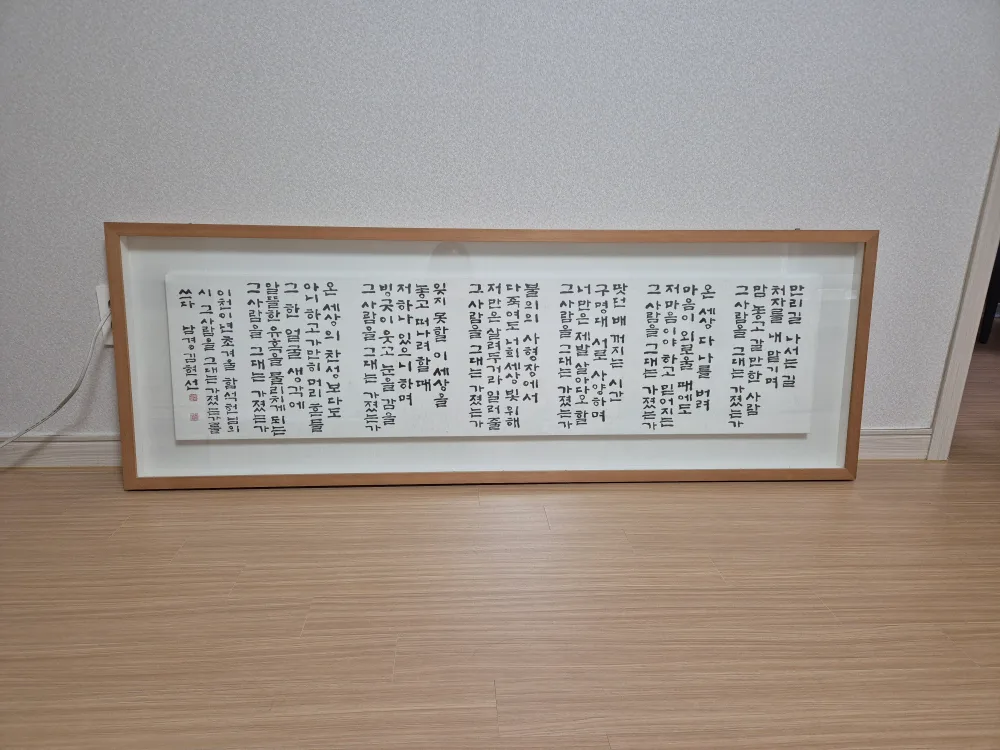 만리길 나서는 길
처자를 내 맡기며
맘 놓고 갈만한 사람
그 사람을 그대는 가졌는가
온 세상 다 나를 버려
마음이 외로울 때에도
저마음이야 하고 믿어지는
그 사람을 그대는 가졌는가
탓던 배 꺼지는 시간
구명대 서로 사양하며
너만은 제발 살아다오 할
그 사람을 그대는 가졌는가
불의의 사형장에서
다 죽여도 너희 세상 빛 위해
저만은 살려두거라 일러 줄
그 사람을 그대는 가졌는가
잊지 못할 이 세상을
놓고 떠나려 할 때
저 하나 있으니 하며
빙긋이 웃고 눈을 감을
그 사람을 그대는 가졌는가
온 세상의 찬성보다도
아니 하고 가만히 머리 흔들
그 한 얼굴 생각에
알뜰한 유혹을 물리치게 되는
그 사람을 그대는 가졌는가
이천이년 초겨울 함석헌님의
시 그사람을 그대는 가졌는가를
쓰다 남경 김현선